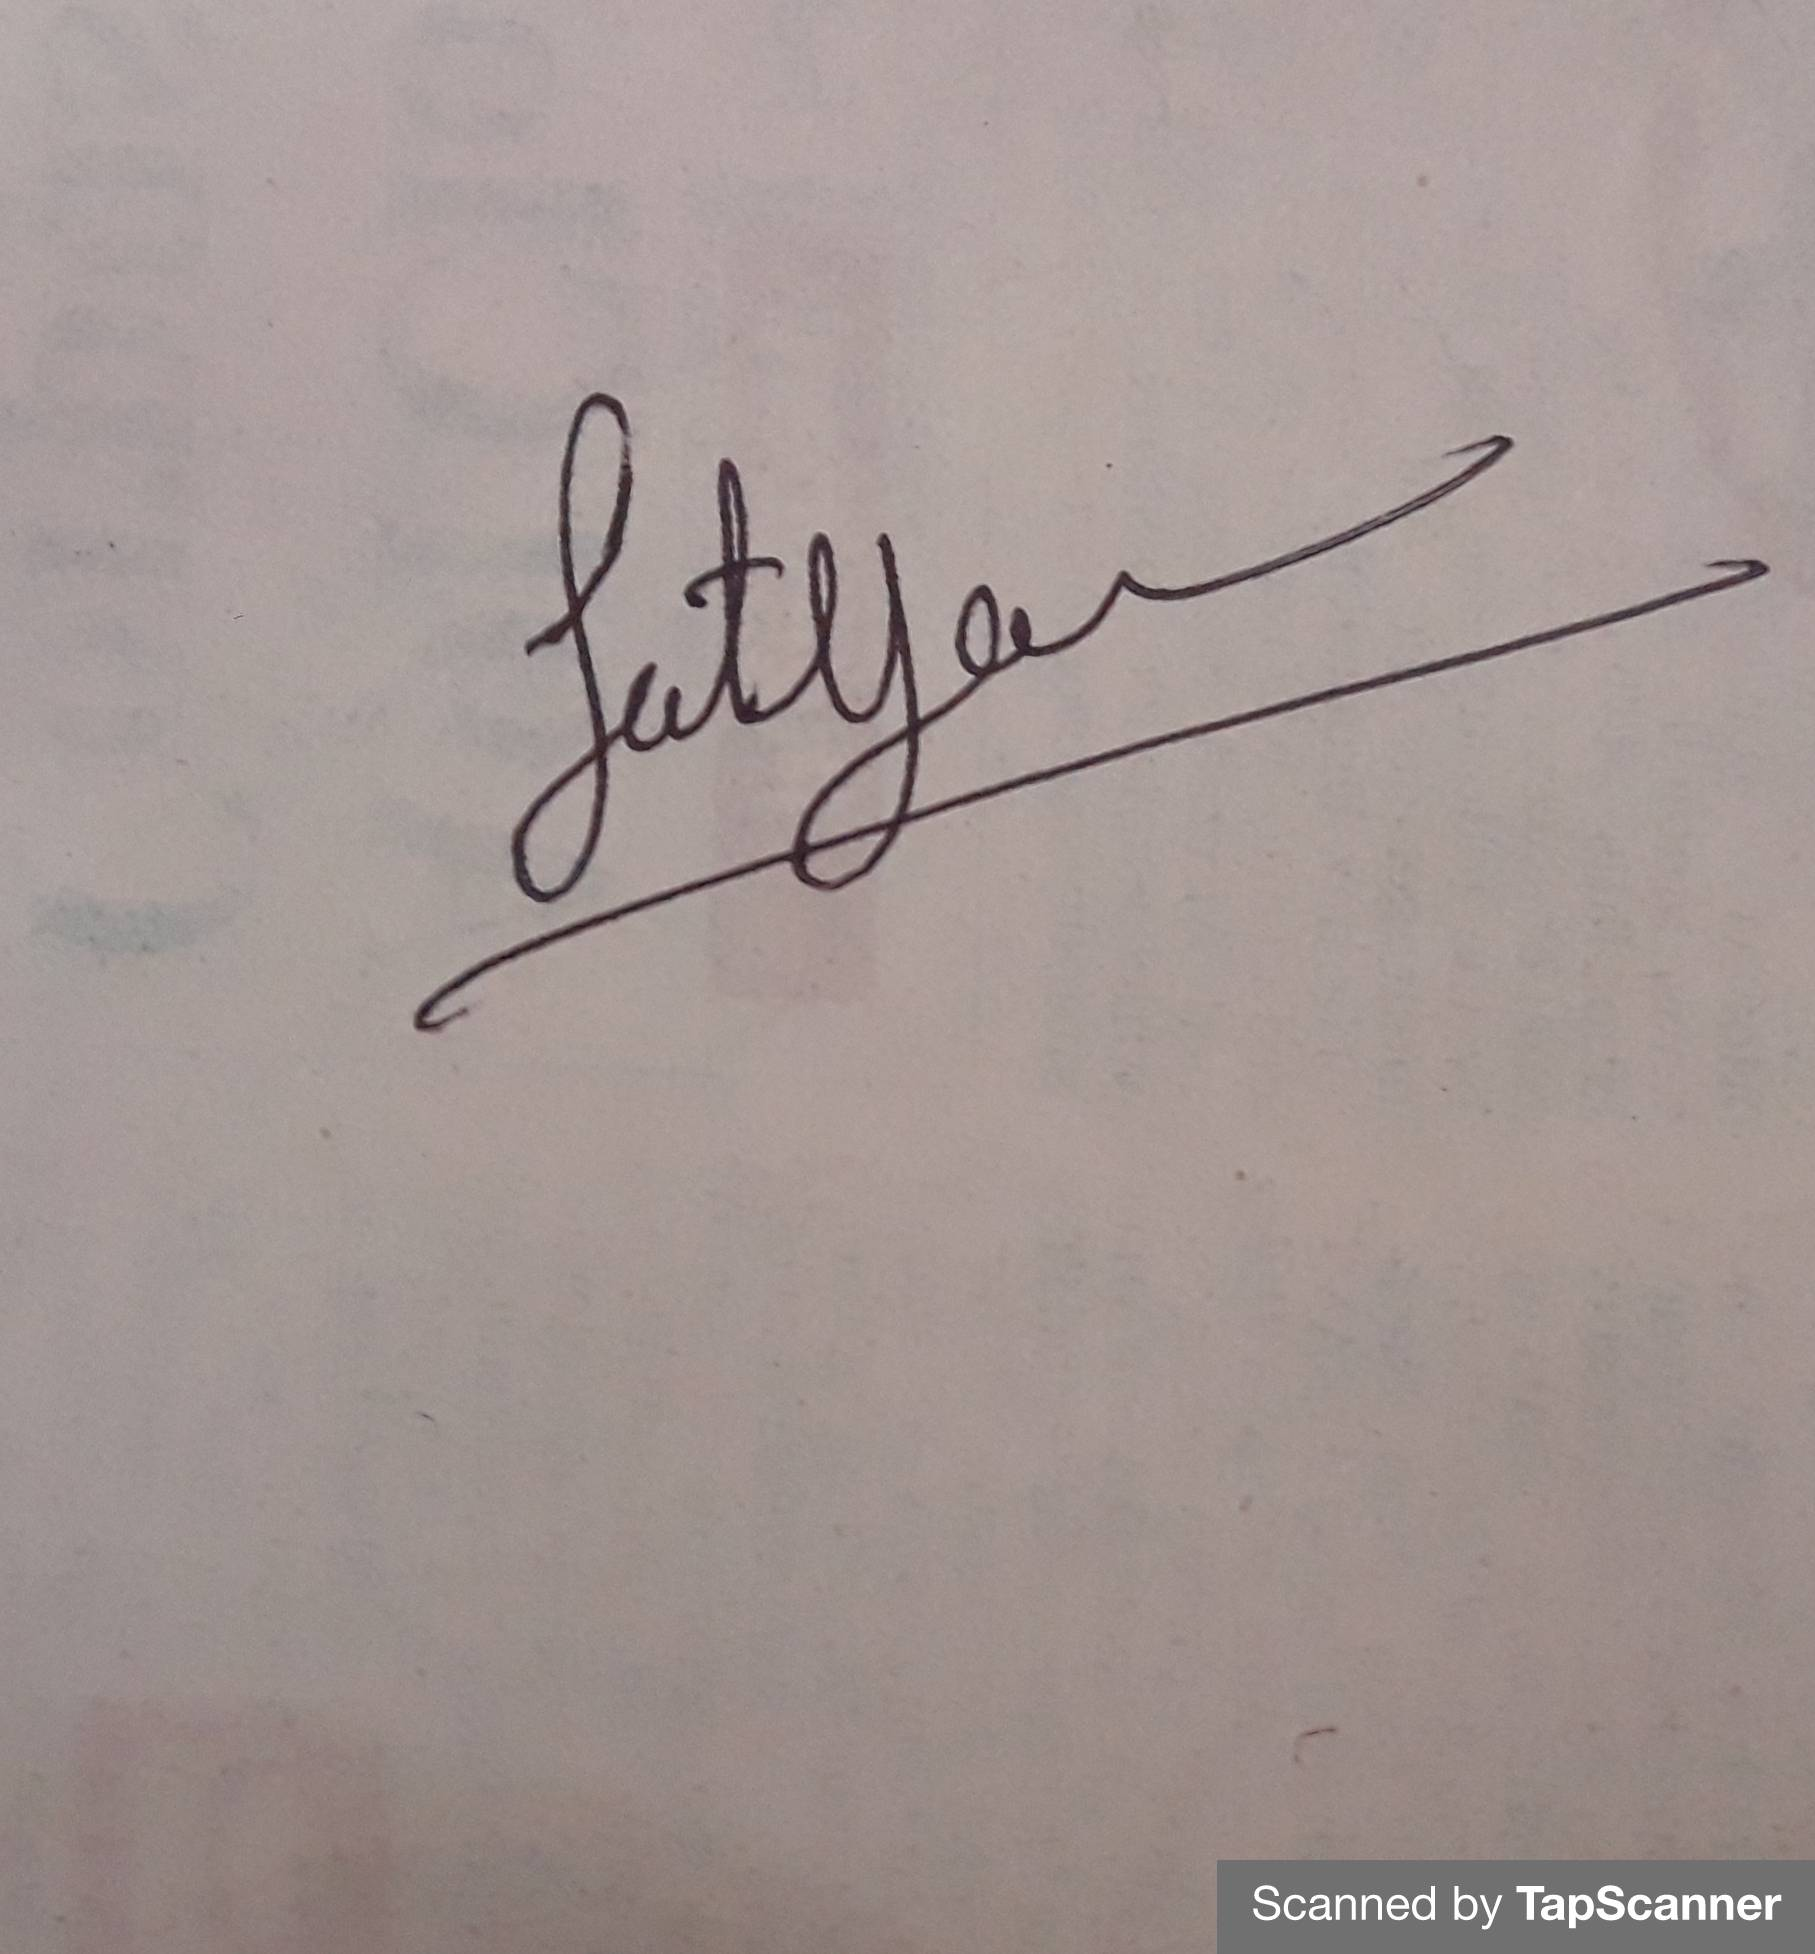 Satyam
Scanned by TapScanner